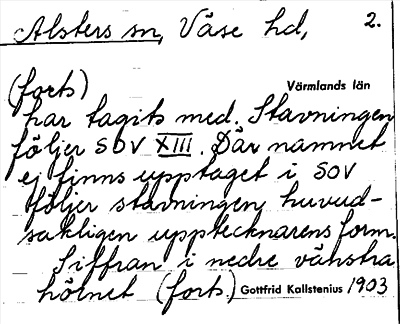 Alsters sn, Väse hd, 2.
(forts) Värmlands län
har tagits med. Stavningen
följer SOV XIII. Där namnet
ej finns upptaget i SOV
följer stavningen huvud-
sakligen upptecknarens form.
Siffran i nedre vänstra
hörnet (forts.) Gottfrid Kallstenius 1903